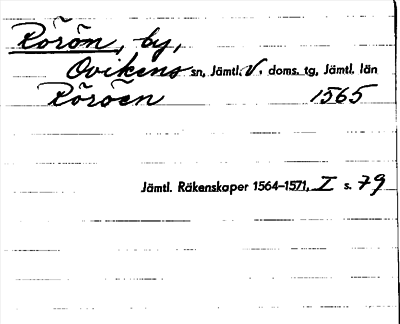 Rörön, by,
Ovikens sn, Jämtl. V. doms. tg, Jämtl. län
Röröen 1565
Jämtl. Räkenskaper 1564–1571, I s. 79